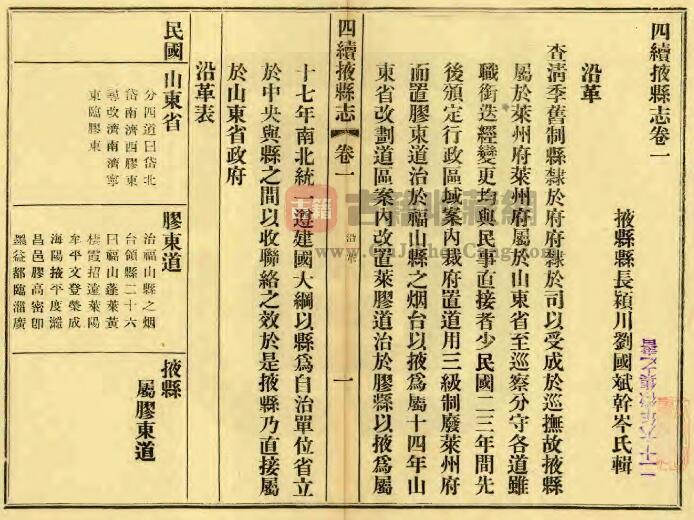 四續掖縣志卷一
掖縣縣長潁川劉國斌幹岑氏輯
沿革
查淸季舊制縣隸於府府隸於司以受成於巡撫故掖縣
屬於萊州府萊州府屬於山東省至巡察分守各道雖
職銜迭經變更均與民事直接者少民國二三年間先
後頒定行政區域案內裁府置道用三級制廢萊州府
而置膠東道治於福山縣之烟台以掖爲屬十四年山
東省改劃道區案內改置萊膠道治於膠縣以掖爲屬
四續掖縣志
卷一
沿革
一
十七年南北統一遵建國大綱以縣爲自治單位省立
於中央與縣之間以收聯絡之效於是掖縣乃直接屬
於山東省政府
沿革表
民國
山東省
分四道曰岱北
岱南濟西膠東
尋改濟南濟寧
東臨膠東
膠東道
治福山縣之烟
台領縣二十六
曰福山蓬萊黃
棲霞招遠萊陽
牟平文登榮成
海陽掖平度濰
昌邑膠高密卽
墨益都臨淄廣
掖縣
屬膠東道
古籍收藏網
www.GuJiShuCang.Com